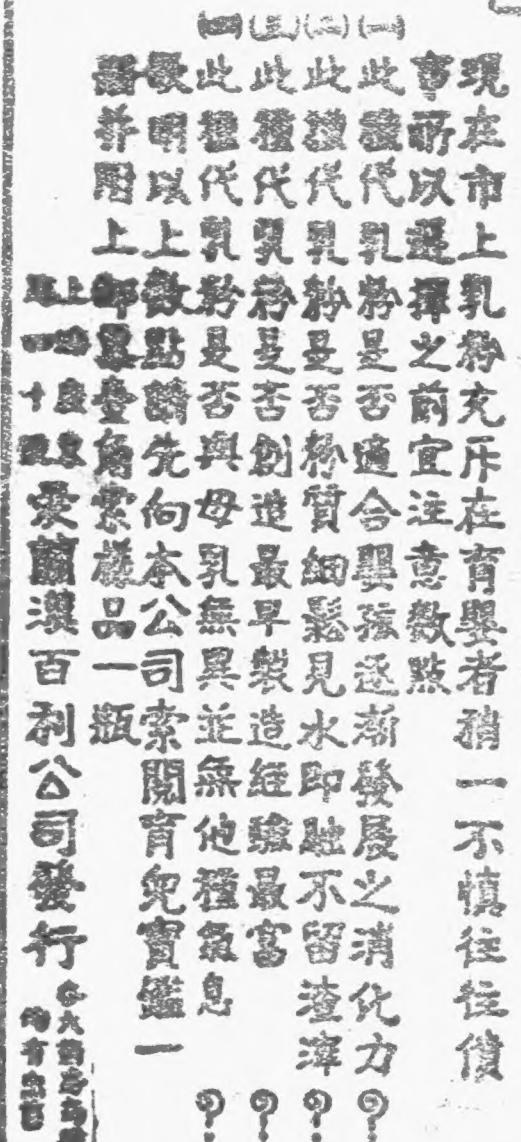 現在市上乳粉充斥在育嬰者稍一不慎往往僨
事所以選擇之前宜注意數點
(一)此種代乳粉是否適合嬰孩逐漸發展之消化力?
(二)此種代乳粉是否粉質細鬆見水即融不留渣滓?
(三)此種代乳粉是否創造最早製造經驗最富?
(四)此種代乳粉是否與母乳無異並無他種氣息?
欲明以上數點請先向本公司索閱育兒寶鑑一
冊并附上郵票壹角索樣品一瓶
愛蘭漢百利公司發行